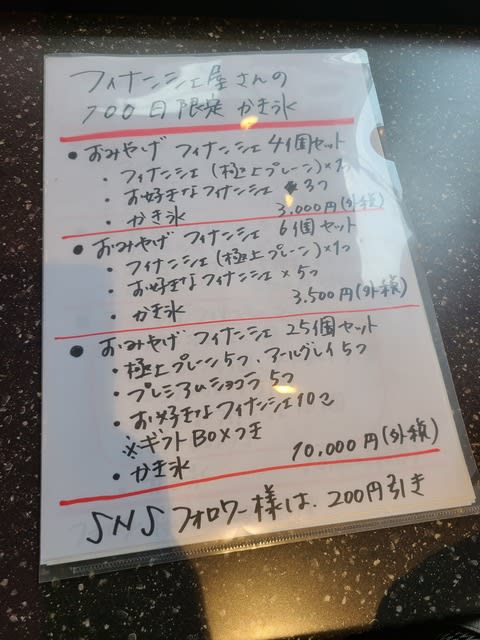 フィナンシェ屋さんの
100日限定 かき氷
● おみやげ フィナンシェ 4個セット
・フィナンシェ (極上プレーン)×1つ
・お好きなフィナンシェ 3つ
・かき氷 3,000円(外税)
● おみやげ フィナンシェ 6個セット
・フィナンシェ (極上プレーン)×1つ
・お好きなフィナンシェ×5つ
・かき氷 3,500円(外税)
● おみやげ フィナンシェ 25個セット
・極上プレーン5つ、アールグレイ5つ
・プレミアムショコラ 5つ
・お好きなフィナンシェ10こ
※ギフトBOXつき
・かき氷 10,000円(外税)
SNSフォロワー様は、200円引き